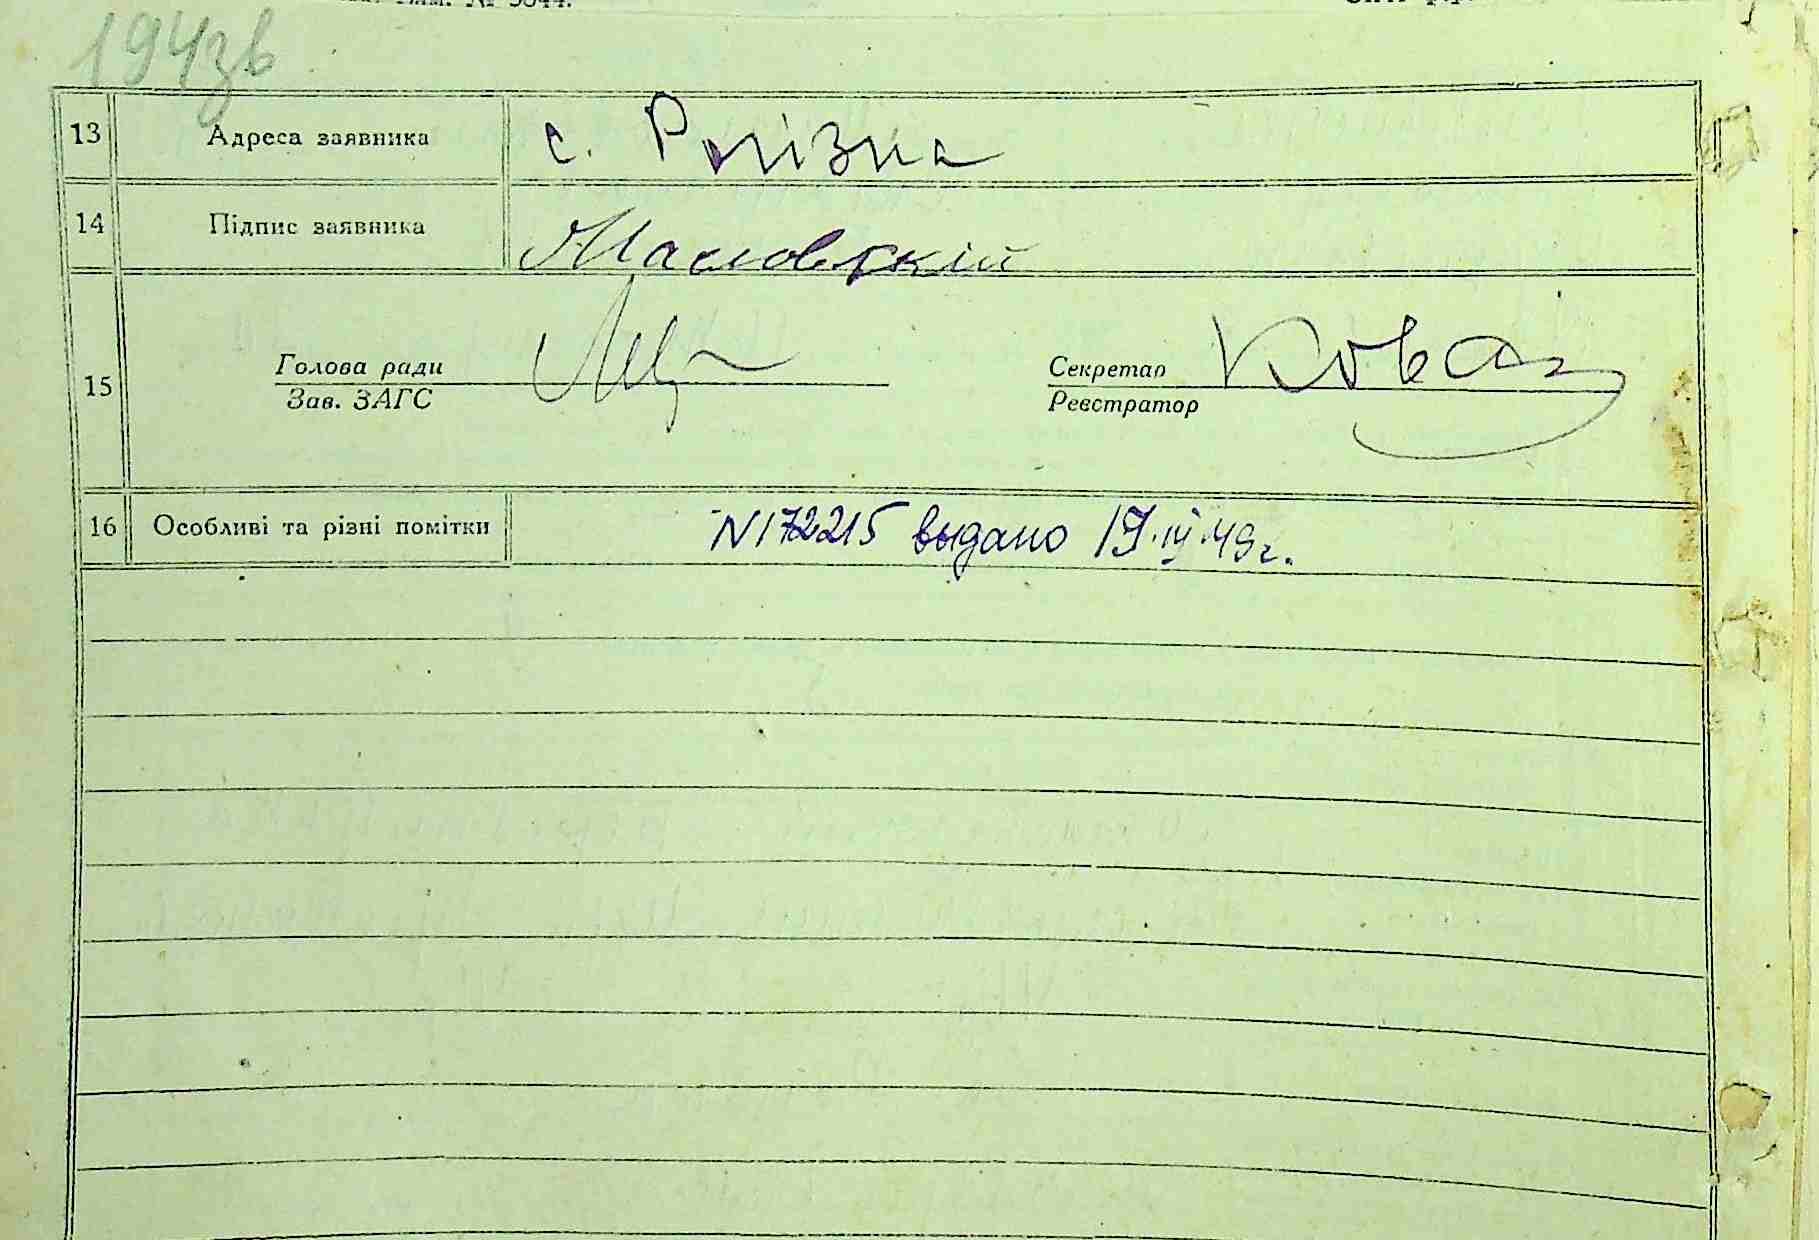 № 5644.
194зв
13 Адреса заявника с. Рогізна
14 Підпис заявника Масловскій
15 Голова ради Секретар
Зав. ЗАГС Реєстратор
16 Особливі та різні помітки N172215 выдано 19.IV.49г.